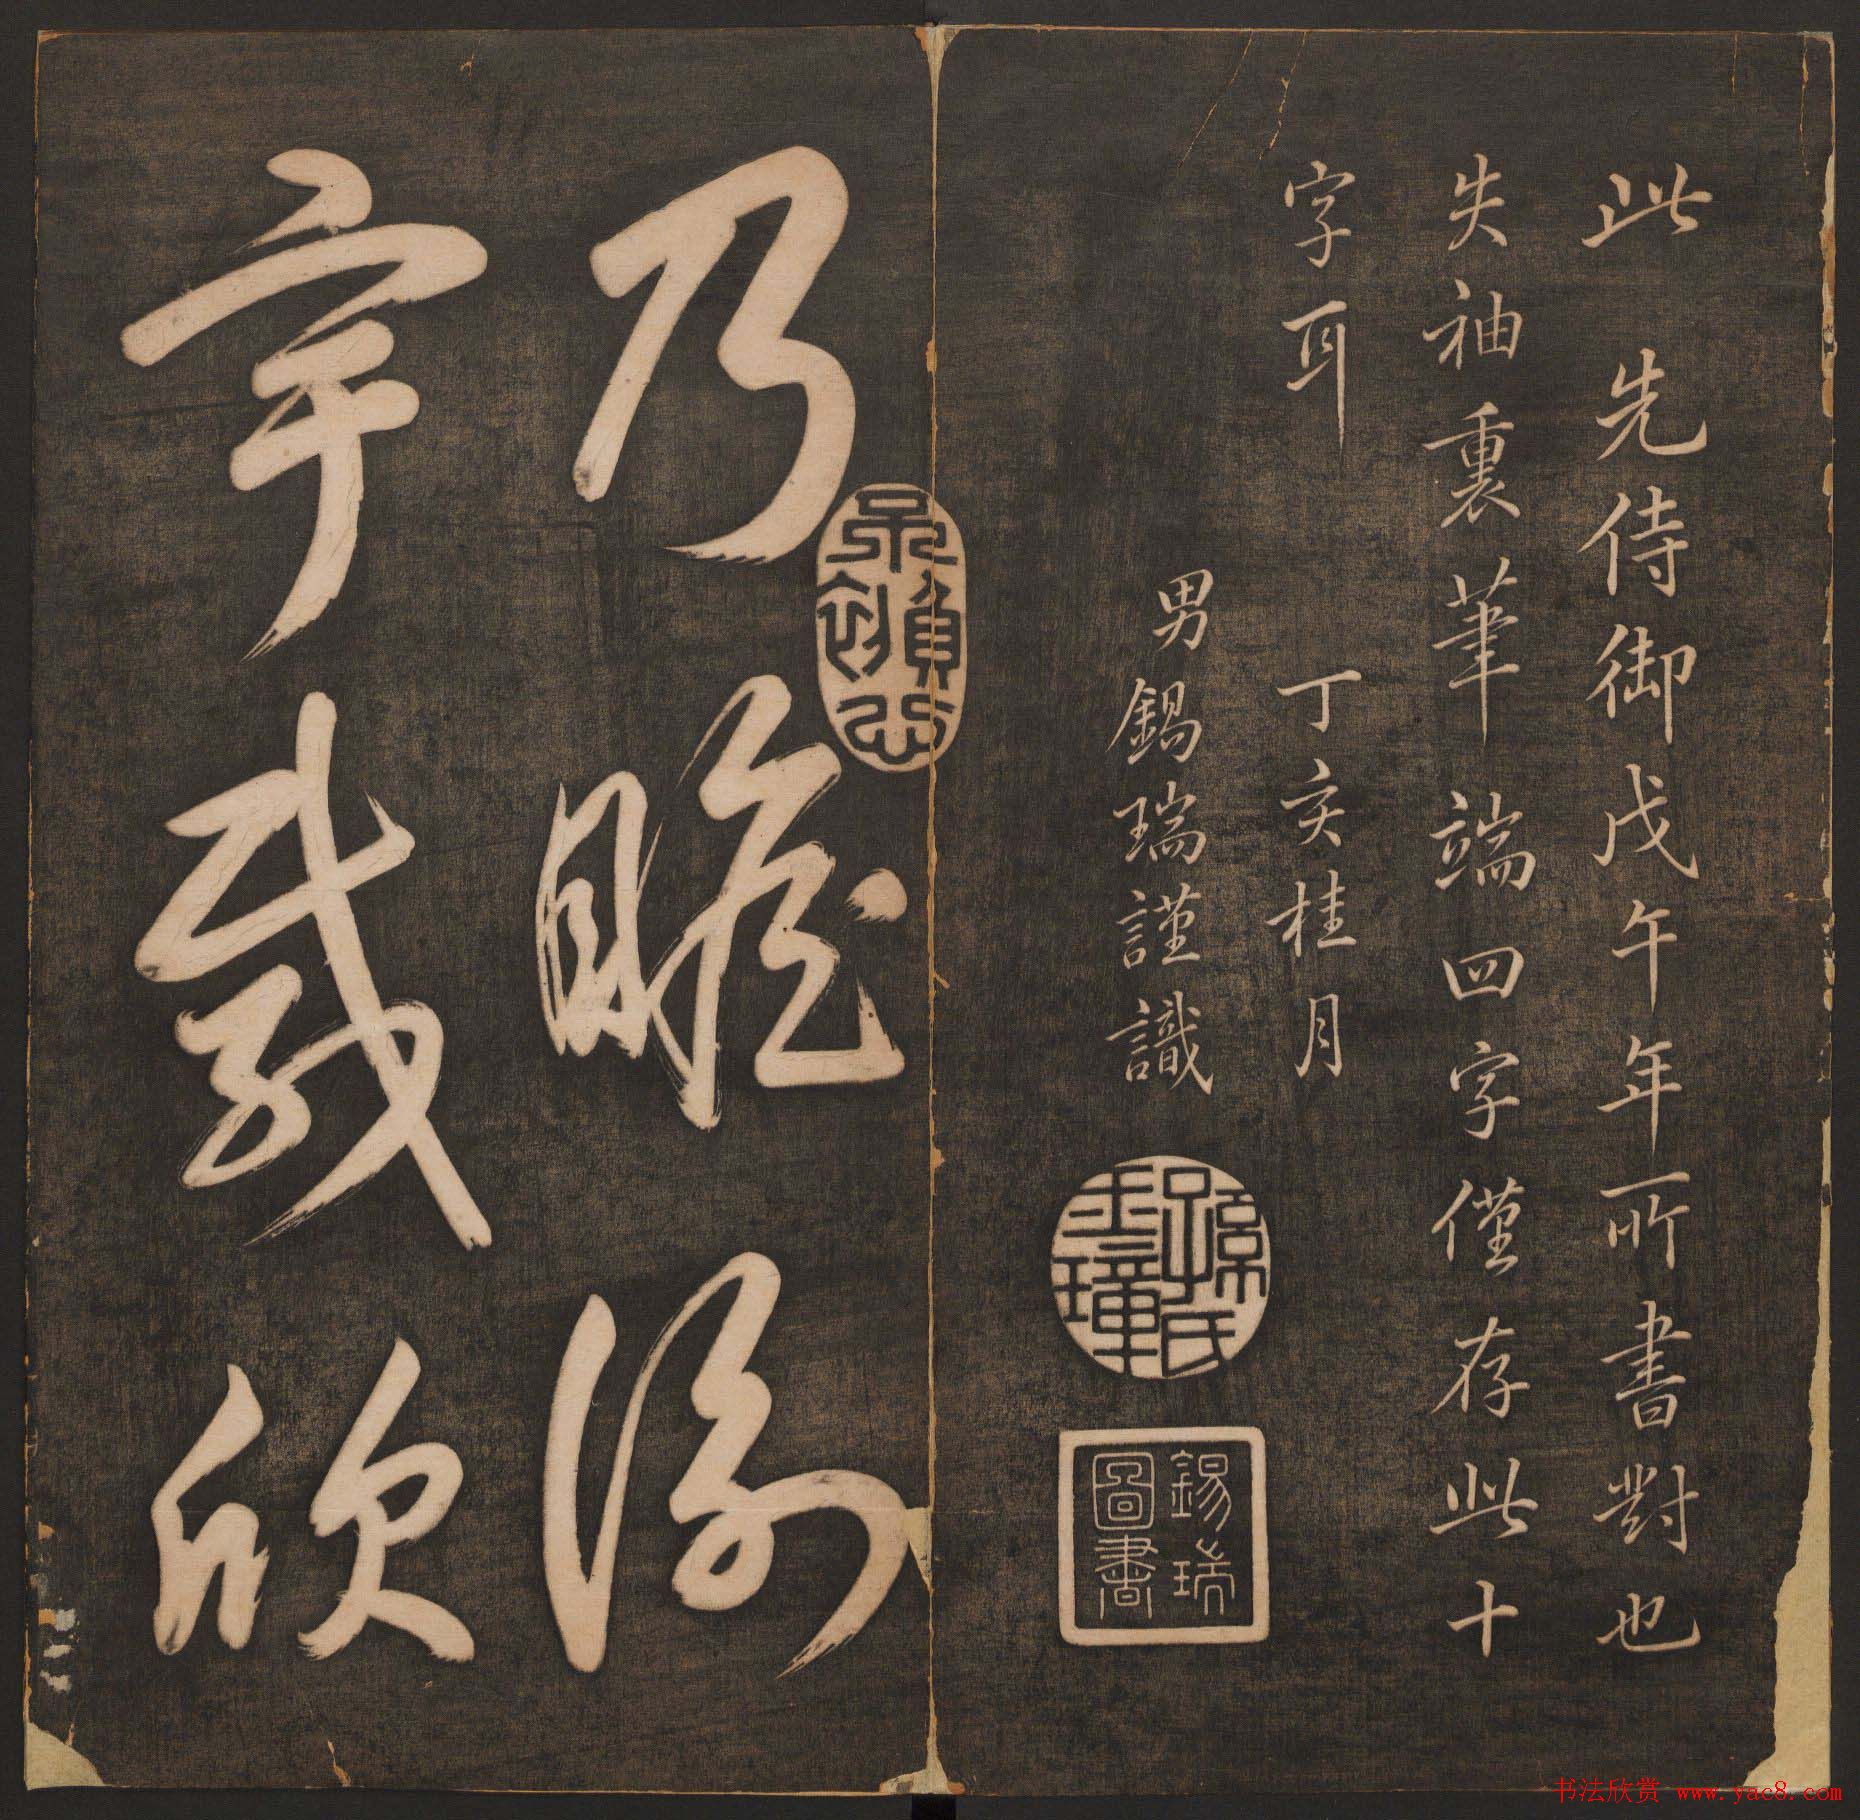 此先侍御戊午年所書對也
失袖裏筆端四字僅存此十
字耳
丁亥桂月
男錫瑞謹識
錫瑞
圖書
乃瞻衡
宇載欣
书法欣赏 www.yac8.com